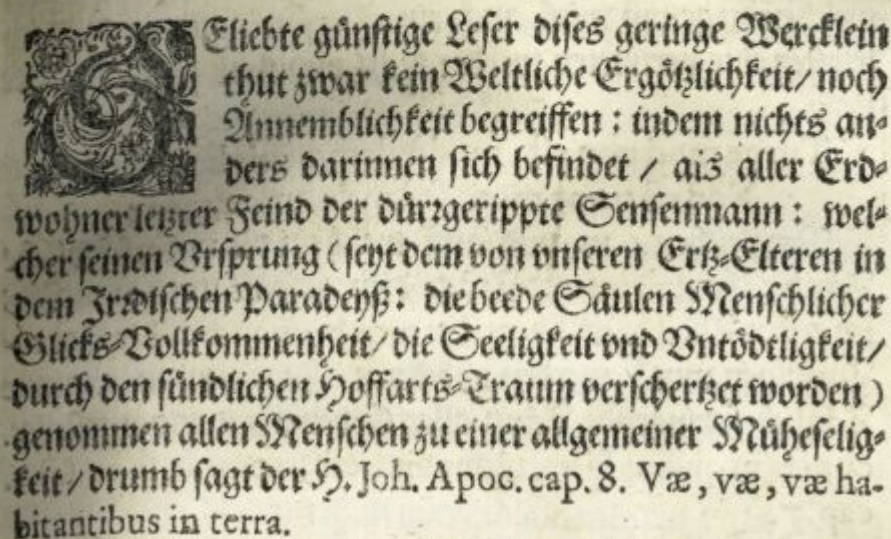 GEliebte günstige Leser dises geringe Wercklein
thut zwar kein Weltliche Ergötzlichkeit/ noch
Annemblichkeit begreiffen : indem nichts an-
ders darinnen sich befindet / als aller Erd-
wohner letzter Feind der dürrgerippte Sensenmann : wel-
cher seinen Vrsprung ( seyt dem von vnseren Ertz-Elteren in
dem Jrrdischen Paradeyß : die beede Säulen Menschlicher
Glicks-Vollkommenheit/ die Seeligkeit vnd Vntödtligkeit/
durch den sündlichen Hoffarts-Traum verschertzet worden )
genommen allen Menschen zu einer allgemeiner Müheselig-
keit / drumb sagt der H. Joh. Apoc. cap. 8. Væ, væ, væ ha-
bitantibus in terra.